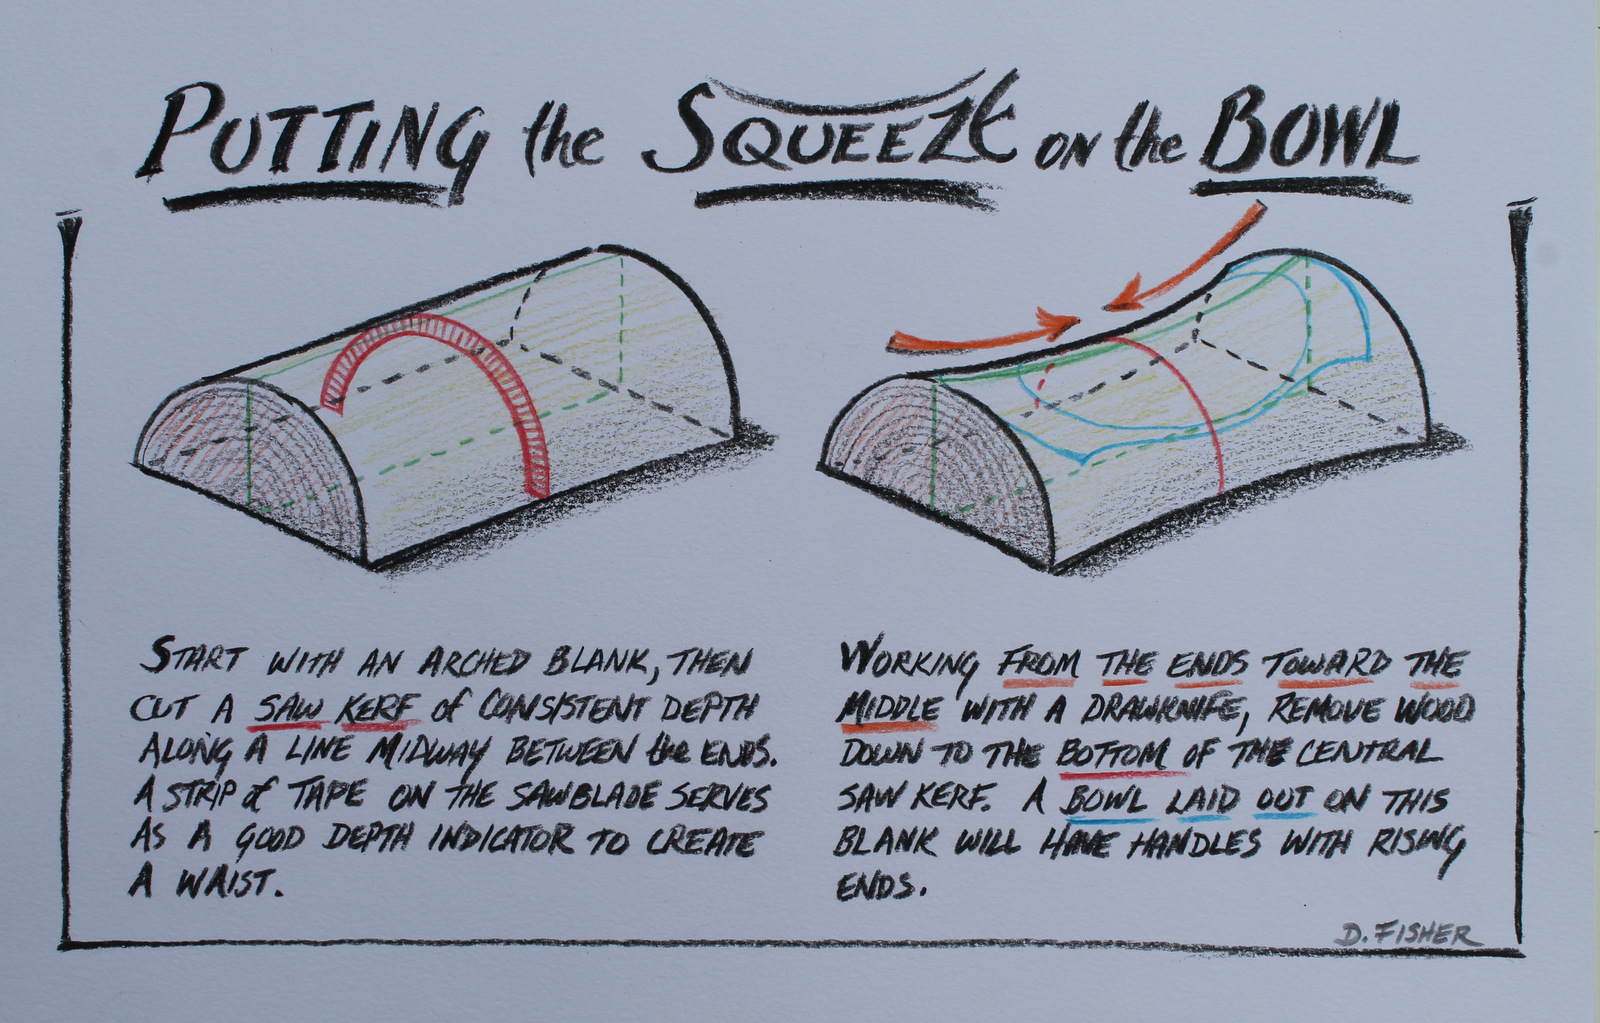 PUTTING the SQUEEZE ON the BOWL
START WITH AN ARCHED BLANK, THEN
CUT A SAW KERF of CONSISTENT DEPTH
ALONG A LINE MIDWAY BETWEEN the ENDS.
A STRIP of TAPE ON THE SAWBLADE SERVES
AS A GOOD DEPTH INDICATOR TO CREATE
A WAIST.
WORKING FROM THE ENDS TOWARD THE
MIDDLE WITH A DRAWKNIFE, REMOVE WOOD
DOWN TO THE BOTTOM OF THE CENTRAL
SAW KERF. A BOWL LAID OUT ON THIS
BLANK WILL HAVE HANDLES WITH RISING
ENDS.
D. FISHER